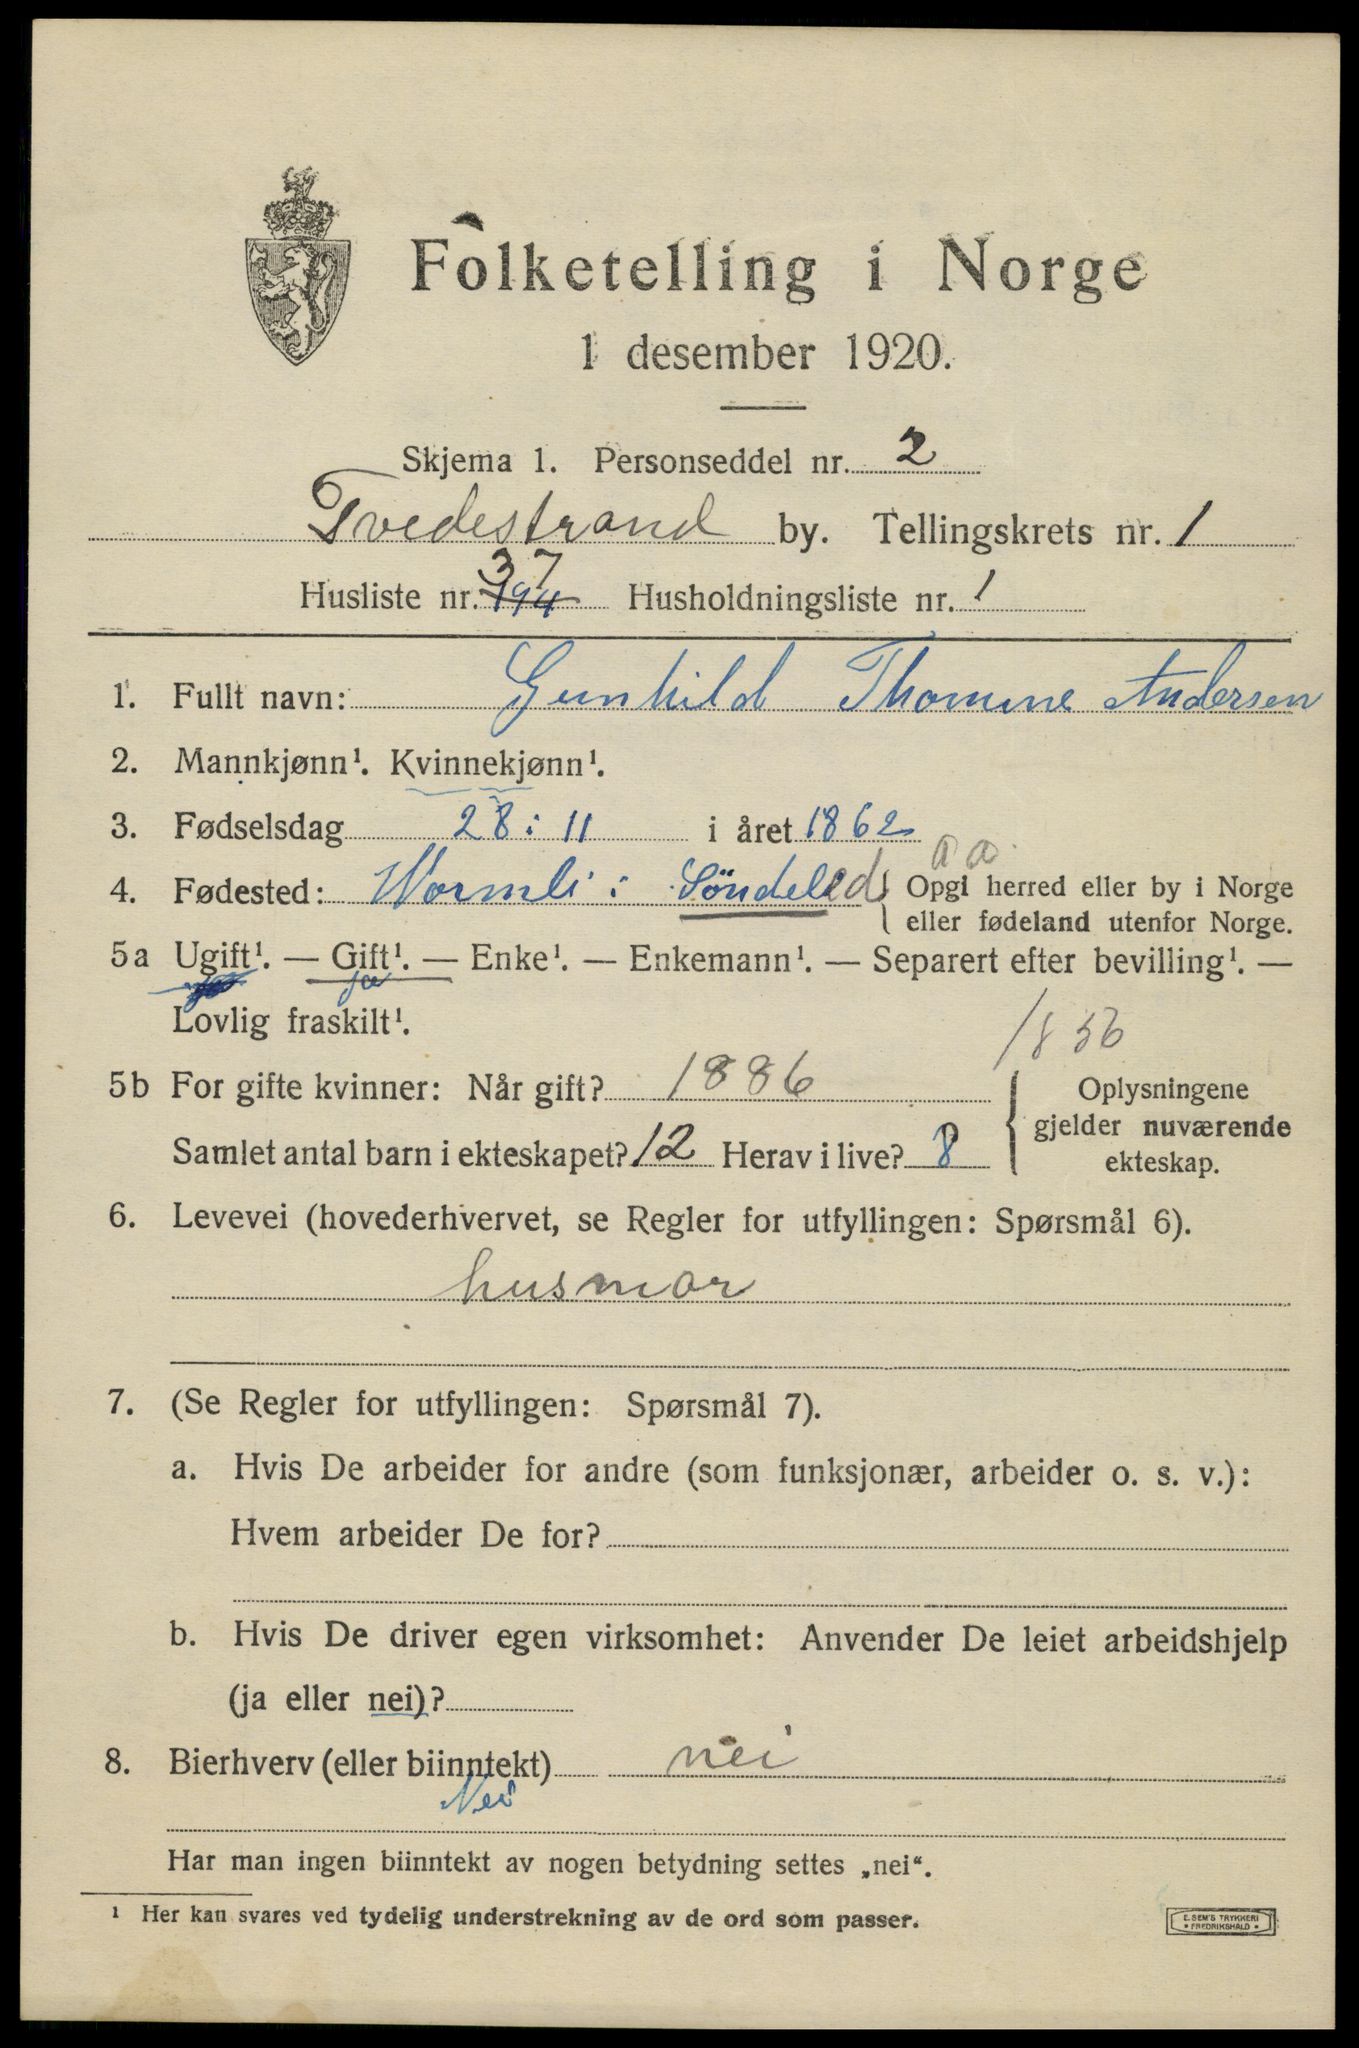 Folketelling i Norge
1 desember 1920.
Skjema 1. Personseddel nr. 2
Tvedestrand by. Tellingskrets nr. 1
37
Husliste nr. 194 Husholdningsliste nr. 1
1. Fullt navn: Gunhild Thomine Andersen
2. Mannkjønn¹. Kvinnekjønn¹.
3. Fødselsdag 28 : 11 i året 1862
aa.
4. Fødested: Wormli i Söndeled { Opgi herred eller by i Norge
eller fødeland utenfor Norge.
5a Ugift¹. — Gift¹. — Enke¹. — Enkemann¹. — Separert efter bevilling¹. —
ja
Lovlig fraskilt¹.
1856
5b For gifte kvinner: Når gift? 1886 { Oplysningene
gjelder nuværende
Samlet antal barn i ekteskapet? 12 Herav i live? 8 ekteskap.
6. Levevei (hovederhvervet, se Regler for utfyllingen: Spørsmål 6).
husmor
7. (Se Regler for utfyllingen: Spørsmål 7).
a. Hvis De arbeider for andre (som funksjonær, arbeider o. s. v.):
Hvem arbeider De for?
b. Hvis De driver egen virksomhet: Anvender De leiet arbeidshjelp
(ja eller nei)?
8. Bierhverv (eller biinntekt) nei
Nei
Har man ingen biinntekt av nogen betydning settes „nei“.
¹ Her kan svares ved tydelig understrekning av de ord som passer.
E. SEM'S TRYKKERI
FREDRIKSHALD